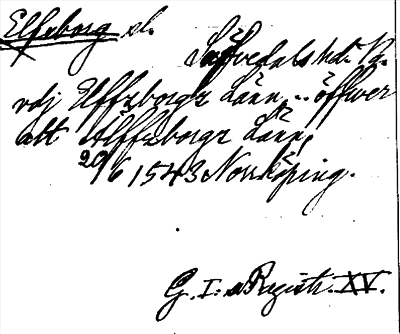 Elfzborg sl.
Säfvedals hd: Vg.
vdj Elffzborgz Länn .. öffwer
alt Älffzborgz Länn,
20/6 1543 Norrköping.
G. I:s Registr. XV.